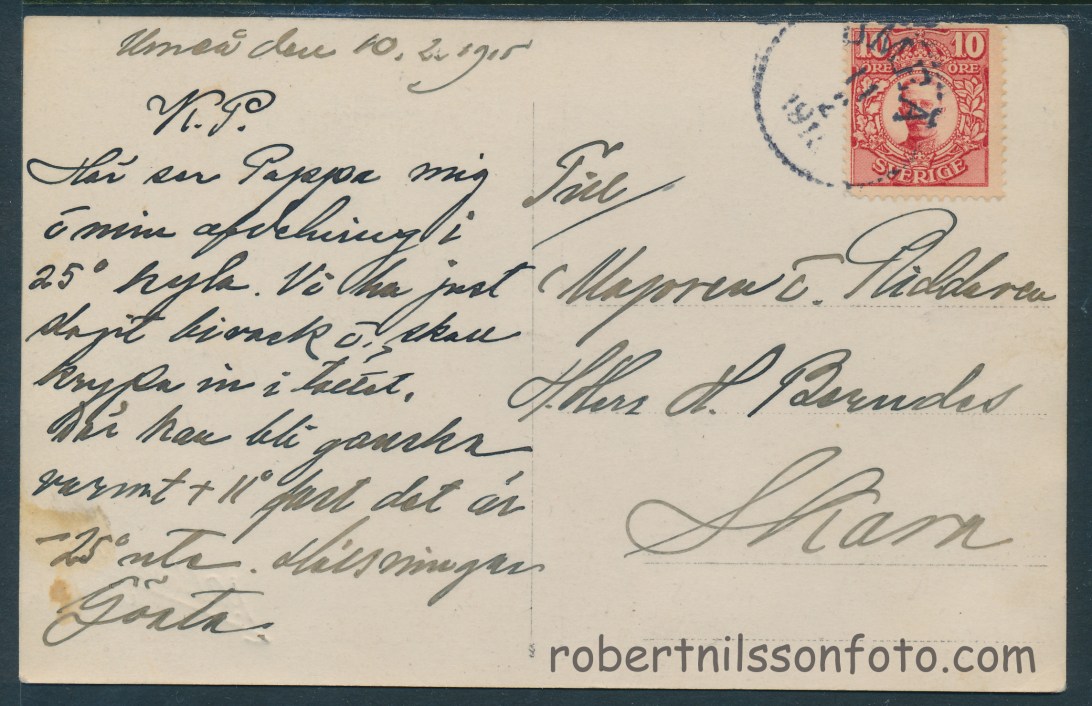 Umeå den 10.2.1915
K.P.
Här ser Pappa mig
o min afdelning i
25° kyla. Vi ha just
dagit bivack o. skall
krypa in i tältet.
Där kan bli ganska
varmt + 11° fast det är
-25° ute. Hälsningar
Gösta.
Till
Majoren o. Riddaren
H. Herr H. Berndes
Skara
UMEÅ
11
2
10 10
ÖRE ÖRE
SVERIGE
robertnilssonfoto.com